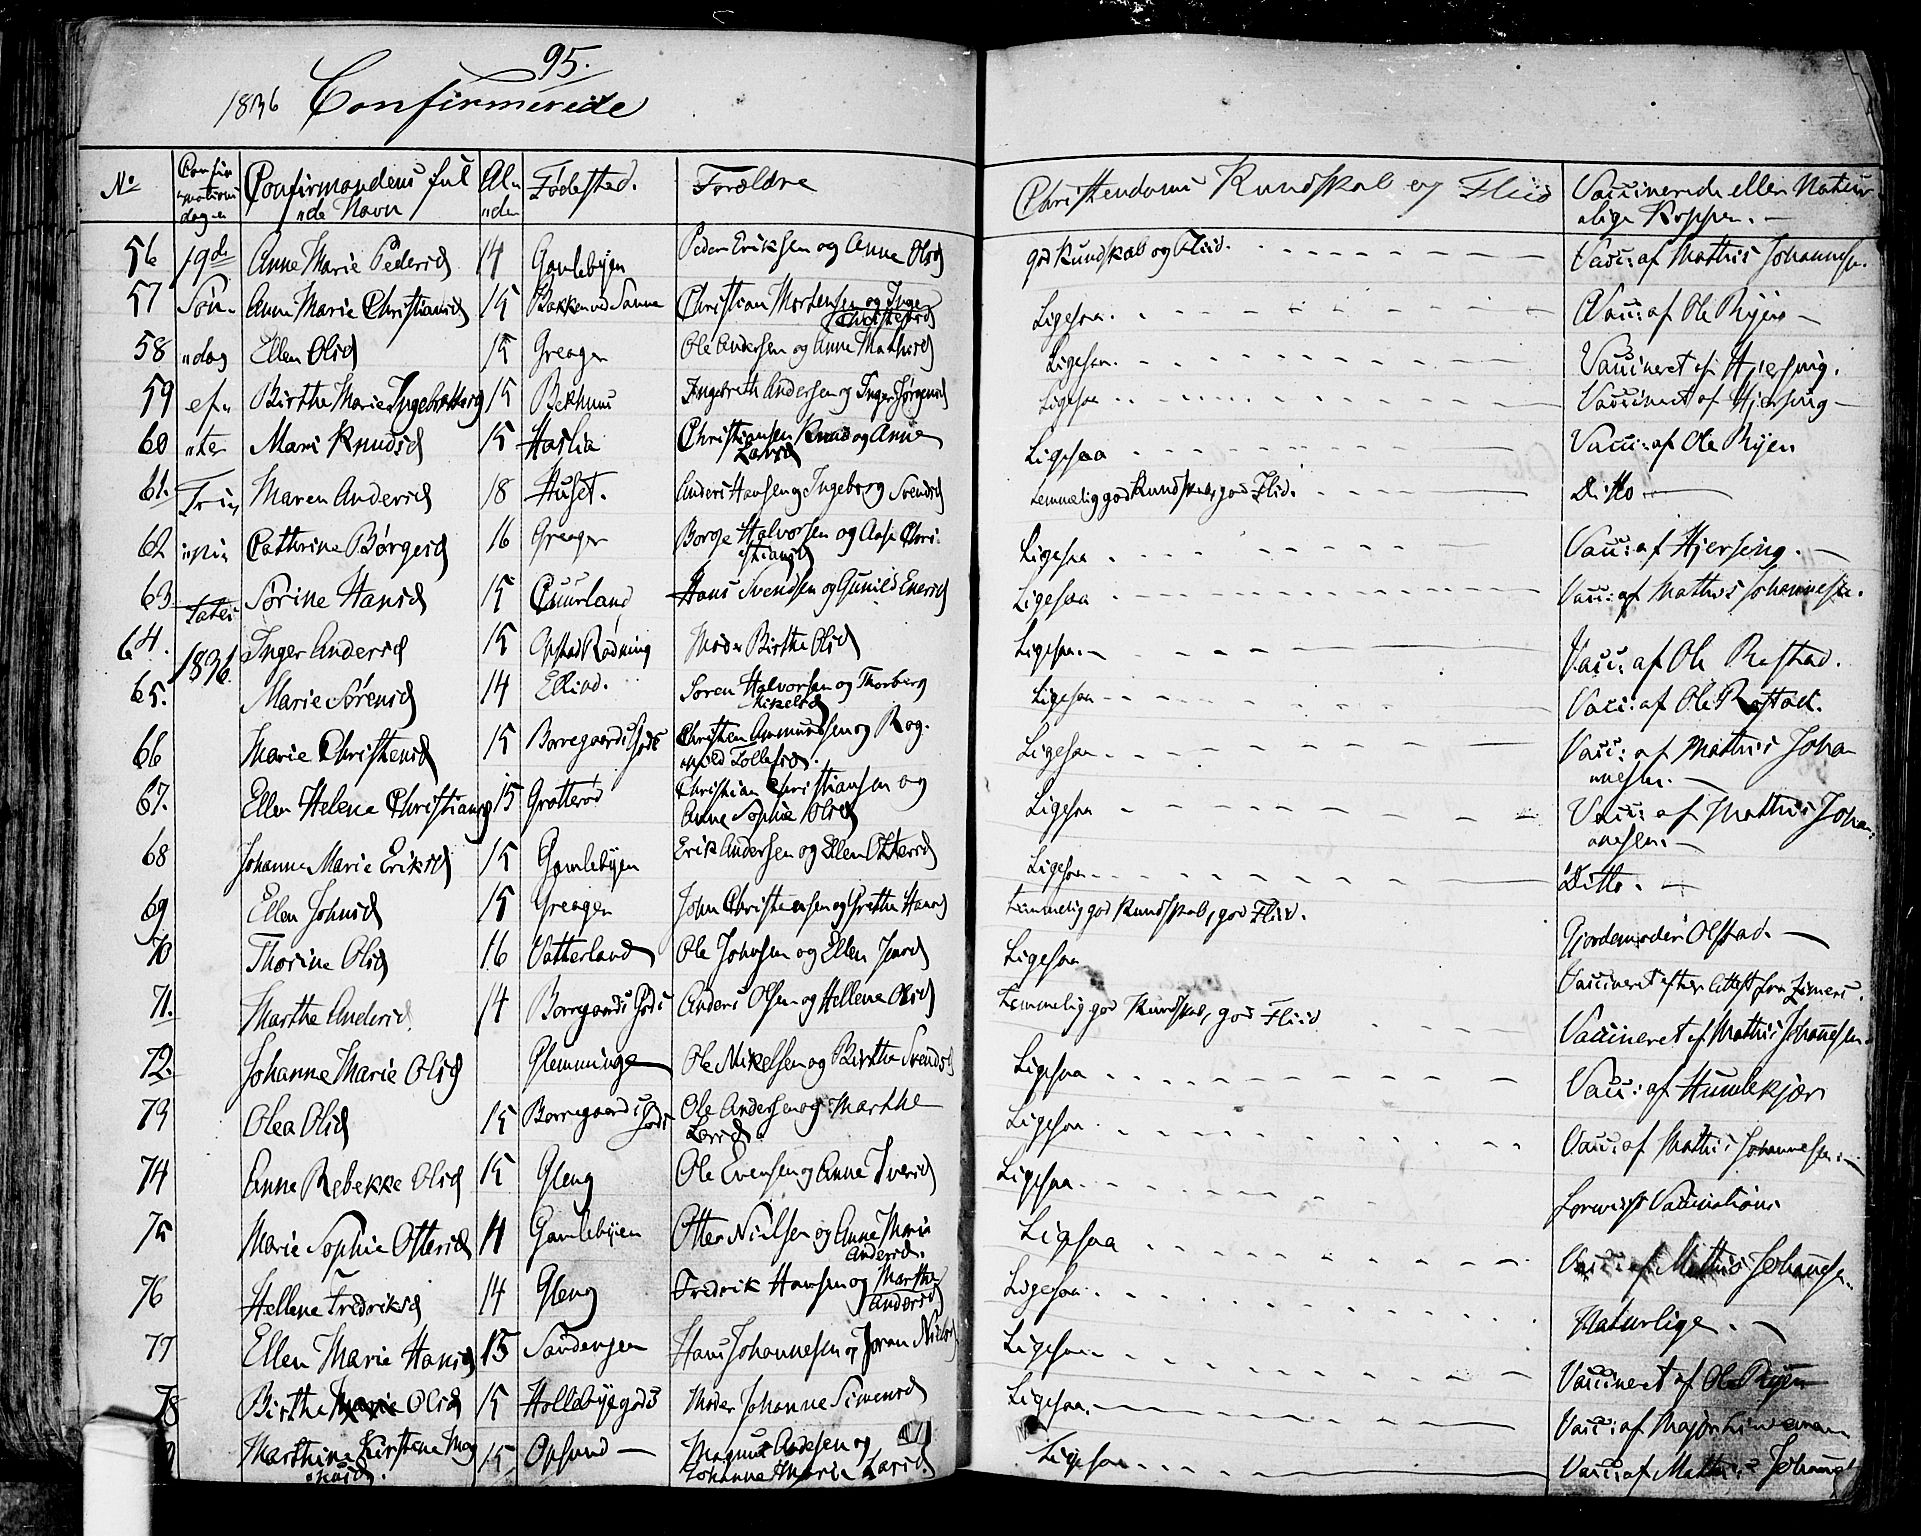 95.
1836 Confirmerede
No Confirmations dagen Confirmandens fulde Navn Alderen Fødested. Forældre Christendoms Kundskab og Fliid Vaccinerede eller Naturlige Kopper.
56 19de Anne Marie Pedersd 14 Gamlebyen Peder Eriksen og Anne Olsd god Kundskab og Fliid. Vacc: af Mathis Johannesn.
57 Søn- Anne Marie Christiansd 15 Bakken ved Sanne Christian Mortensen og Inge Christofsd Ligesaa. Vacc: af Ole Ryen
58 dag Ellen Olsd 15 Greager Ole Andersen og Anne Mathisd Ligesaa. Vaccineret af Hjersing.
59 ef- Birthe Marie Ingebrethsg 15 Bekhuus Ingebreth Andersen og Inger Jørgensd Ligesaa Vaccineret af Hjersing
60 ter Mari Knudsd 15 Haslia Christiansen Knud og Anne Larsd Ligesaa Vacc: af Ole Ryen
61. Tri- Maren Andersd 18 Huset. Anders Hansen og Ingeborg Svendsd temmelig god Kundskab, god Flid. Ditto
62 ni- Cathrine Børgesd 16 Greager Borge Halvorsen og Aase Christiansd Ligesaa Vacc: af Hjersing.
63 tatis Sørine Hansd 15 Cuurland Hans Svendsen og Gunild Enersd Ligesaa Vacc: af Mathis Johannesen.
64. 1836. Inger Andersd 15 Opstad Rødning Moder Birthe Olsd Ligesaa. Vacc: af Ole Restad.
65. Marie Sørensd 14 Ellind. Søren Halvorsen og Thorberg Mikelsd Ligesaa Vacc: af Ole Restad.
66 Marie Christensd 15 Borregaards Gods Christen Ammundsen og Rognhild Tollefsd. Ligesaa Vacc: af Mathis Johannesen.
67. Ellen Helene Christiansg 15 Grotterød Christian Christiansen og Anne Sophie Olsd Ligesaa Vacc: af Mathis Johannesen.
68 Johanne Marie Eriksd 15 Gamlebyen Erik Andersen og Ellen Ottersd Ligesaa Ditto.
69 Ellen Johnsd 15 Greager John Christensen og Grethe Hansd temmelig god Kundskab, god Fliid. Gjordemoder Olstad.
70 Thorine Olsd 16 Vatterland Ole Johnsen og Ellen Joensd Ligesaa Vaccineret efter Attest fra Zimers.
71. Marthe Andersd. 14 Borregaards Gods Anders Olsen og Hellene Olsd temmelig god Kundskab, god Fliid Vaccineret af Mathis Johannesen.
72. Johanne Marie Olsd Glemminge Ole Mikelsen og Birthe Svendsd Ligesaa Vacc: af Humlekjær
73 Olea Olsd 15 Borregaards Gods Ole Andersen og Marthe Larsd. Ligesaa Vacc: af Mathis Johannesen.
74 Anne Rebekke Olsd 15 Gleng Ole Evensen og Anne Iversd Ligesaa. Vaccinations
75 Marie Sophie Ottersd 14 Gamlebyen Otter Nielsen og Anne Marie Andersd. Ligesaa Vacc: af Mathis Johannesn.
76 Hellene Fredriksd 14 Gleng Fredrik Hansen og Marthe Andersd Ligesaa Naturlige.
77 Ellen Marie Hansd 15 Sandengen Hans Johannesen og Joran Nielsd Ligesaa Vaccineret af Ole Ryen
78 Birthe Marie Olsd 15 Hollebyegods Moder Johanne Simensd Ligesaa. Vacc: af Major
Marthine Kirstine Magnusd. 15 Opsund Magnus Andersen og Johanne Maria Larsd. Ligesaa Vacc: af Mathis Johannes